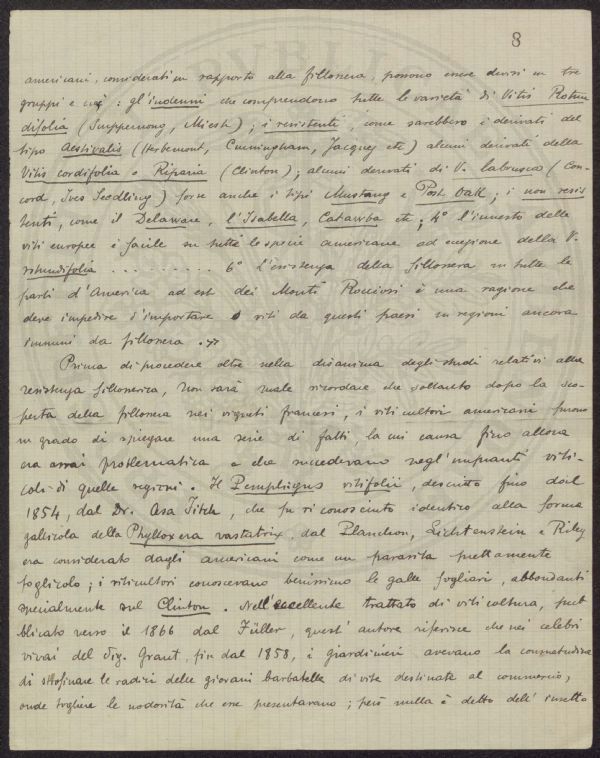 8
americani, considerati in rapporto alla fillossera, possono essere divisi in tre
gruppi e cioè: gl'indenni che comprendono tutte le varietà di Vitis Rotun
difolia (Scuppernong, Miesh); i resistenti, come sarebbero i derivati del
tipo Aestivalis (Herbemont, Cunningham, Jacquez etc) alcuni derivati della
Vitis cordifolia o Riparia (Clinton); alcuni derivati di V. labrusca (Con-
cord, Ives Seedling) forse anche i tipi Mustang e Post oak; i non resis
tenti, come il Delaware, l'Isabella, Catawba etc; 4° l'innesto delle
viti europee è facile su tutte le specie americane ad eccezione della V.
rotundifolia . . . . . . . . . . 6° L'esistenza della fillossera in tutte le
parti d'America ad est dei Monti Rocciosi è una ragione che
deve impedire d'importare viti da questi paesi in regioni ancora
immuni da fillossera.»
Prima di procedere oltre nella disanima degli studi relativi alla
resistenza fillosserica, non sarà male ricordare che soltanto dopo la sco-
perta della fillossera nei vigneti francesi, i viticultori americani furono
in grado di spiegare una serie di fatti, la cui causa fino allora
era assai problematica e che succedevano negl'impianti viti-
coli di quelle regioni. Il Pemphigus vitifolii, descritto fino dal
1854, dal Dr. Asa Fitch, che fu riconosciuto identico alla forma
gallicola della Phylloxera vastatrix, dal Planchon, Lichtenstein e Riley
era considerato dagli americani come un parassita prettamente
foglicolo; i viticultori conoscevano benissimo le galle fogliari, abbondanti
specialmente sul Clinton. Nell'eccellente trattato di viticoltura, pub
blicato verso il 1866 dal Füller, quest'autore riferisce che nei celebri
vivai del Sig. Grant, fin dal 1858, i giardinieri avevano la consuetudine
di strofinare le radici delle giovani barbatelle di vite destinate al commercio,
onde togliere le nodosità che esse presentavano; però nulla è detto dell'insetto